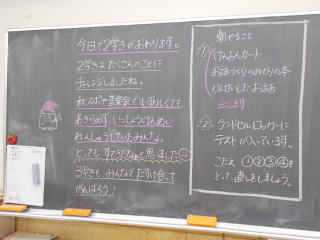 今日で2学きがおわります。
2学きは たくさんのことに
チャレンジしましたね。
あきらめず、いっしょうけんめい
れんしゅうしていたみんな。
とっても すてきだなぁと思いました
3学きも みんなで たすけ合って
がんばろう！
朝やること
①
けんおんカード
出します
②
ランドセルロッカーに
テストが入っています。
こたえ ①②③④を
とって 直しをしましょう。